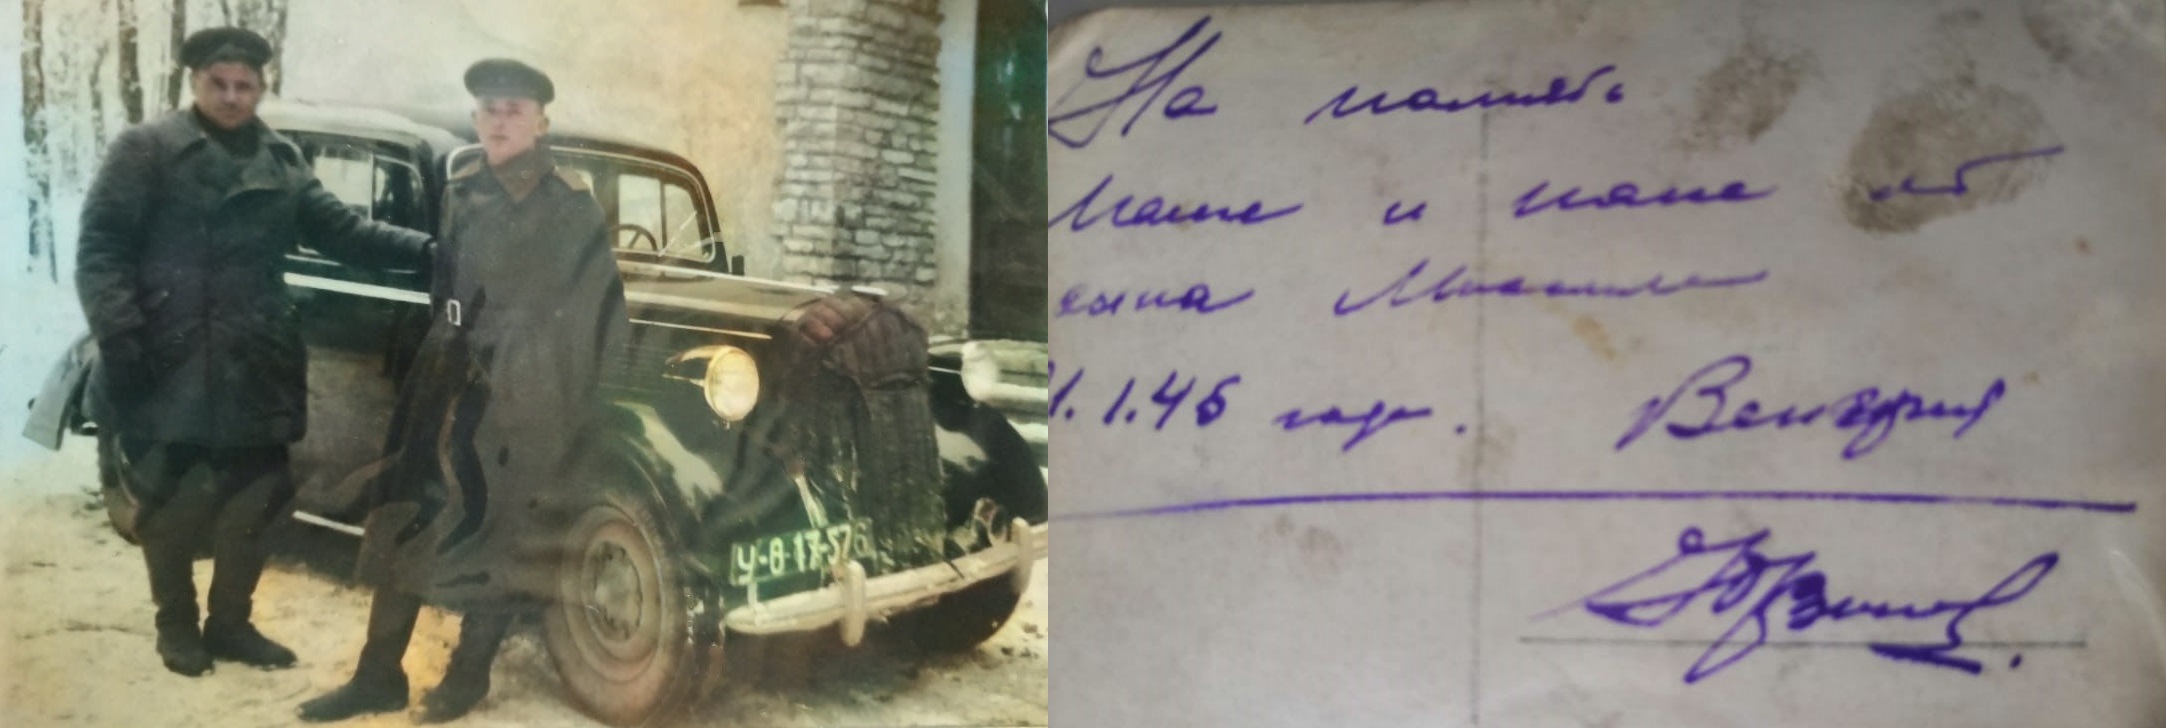 У-8-17-576
На память
Маме и папе от
сына Михаила
1.1.45 года. Венгрия